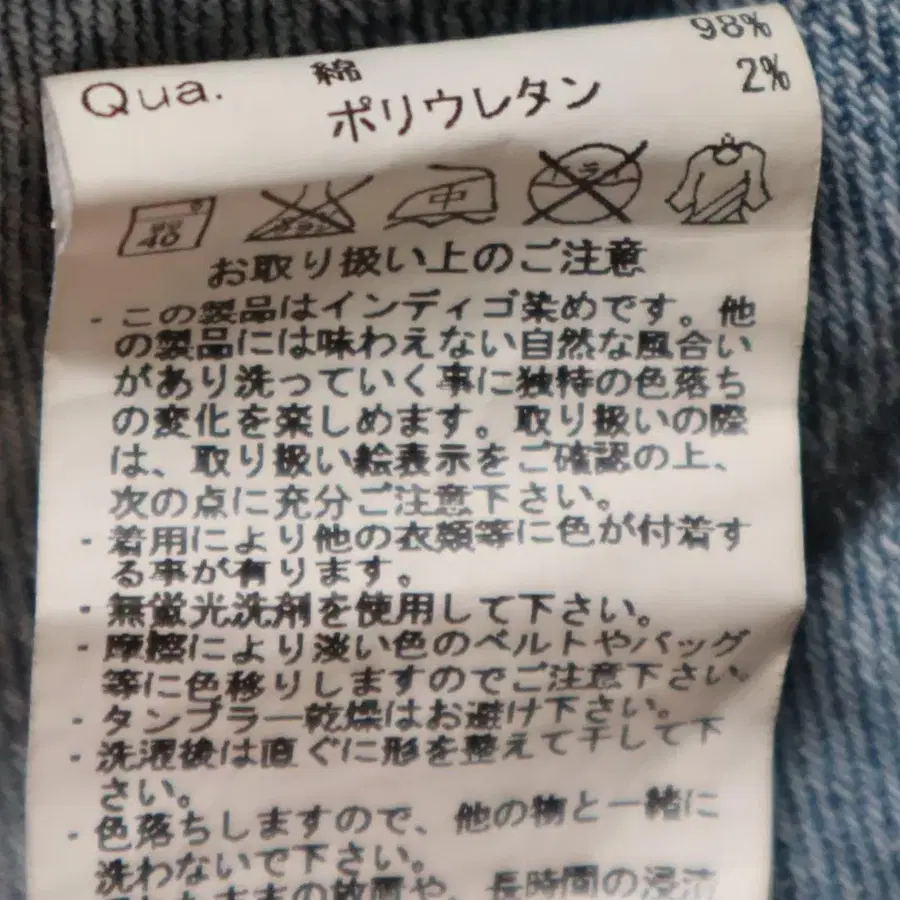 Qua. 綿 98%
ポリウレタン 2%
40 中 ドライ
お取り扱い上のご注意
・この製品はインディゴ染めです。他
の製品には味わえない自然な風合い
があり洗っていく事に独特の色落ち
の変化を楽しめます。取り扱いの際
は、取り扱い絵表示をご確認の上、
次の点に充分ご注意下さい。
・着用により他の衣類等に色が付着す
る事が有ります。
・無蛍光洗剤を使用して下さい。
・摩擦により淡い色のベルトやバッグ
等に色移りしますのでご注意下さい。
・タンブラー乾燥はお避け下さい。
・洗濯後は直ぐに形を整えて干して下
さい。
・色落ちしますので、他の物と一緒に
洗わないで下さい。
ままの放置や、長時間の浸漬